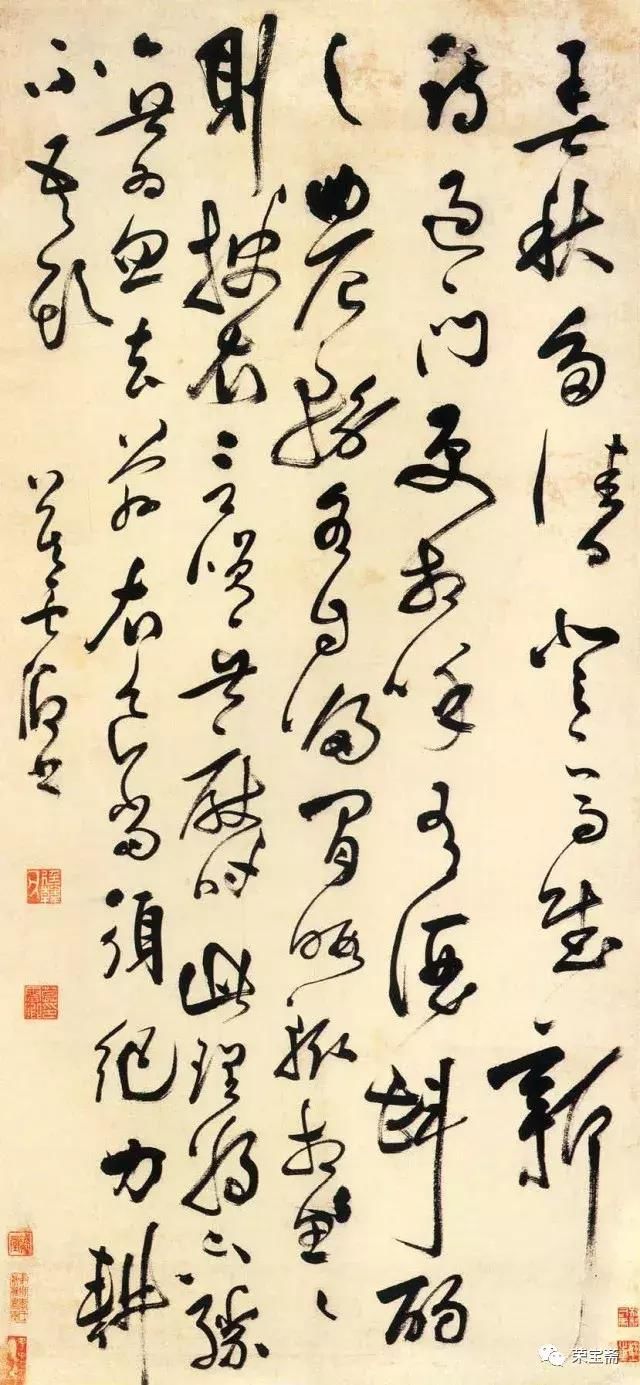 春秋多佳日登高賦新
詩過門更相呼有酒斟酌
之農務各自歸閒暇輒相思〻
則披衣言笑無厭時此理將不勝
無為忽去茲衣食當須紀力耕
不吾欺 莫雲卿書
荣宝斋